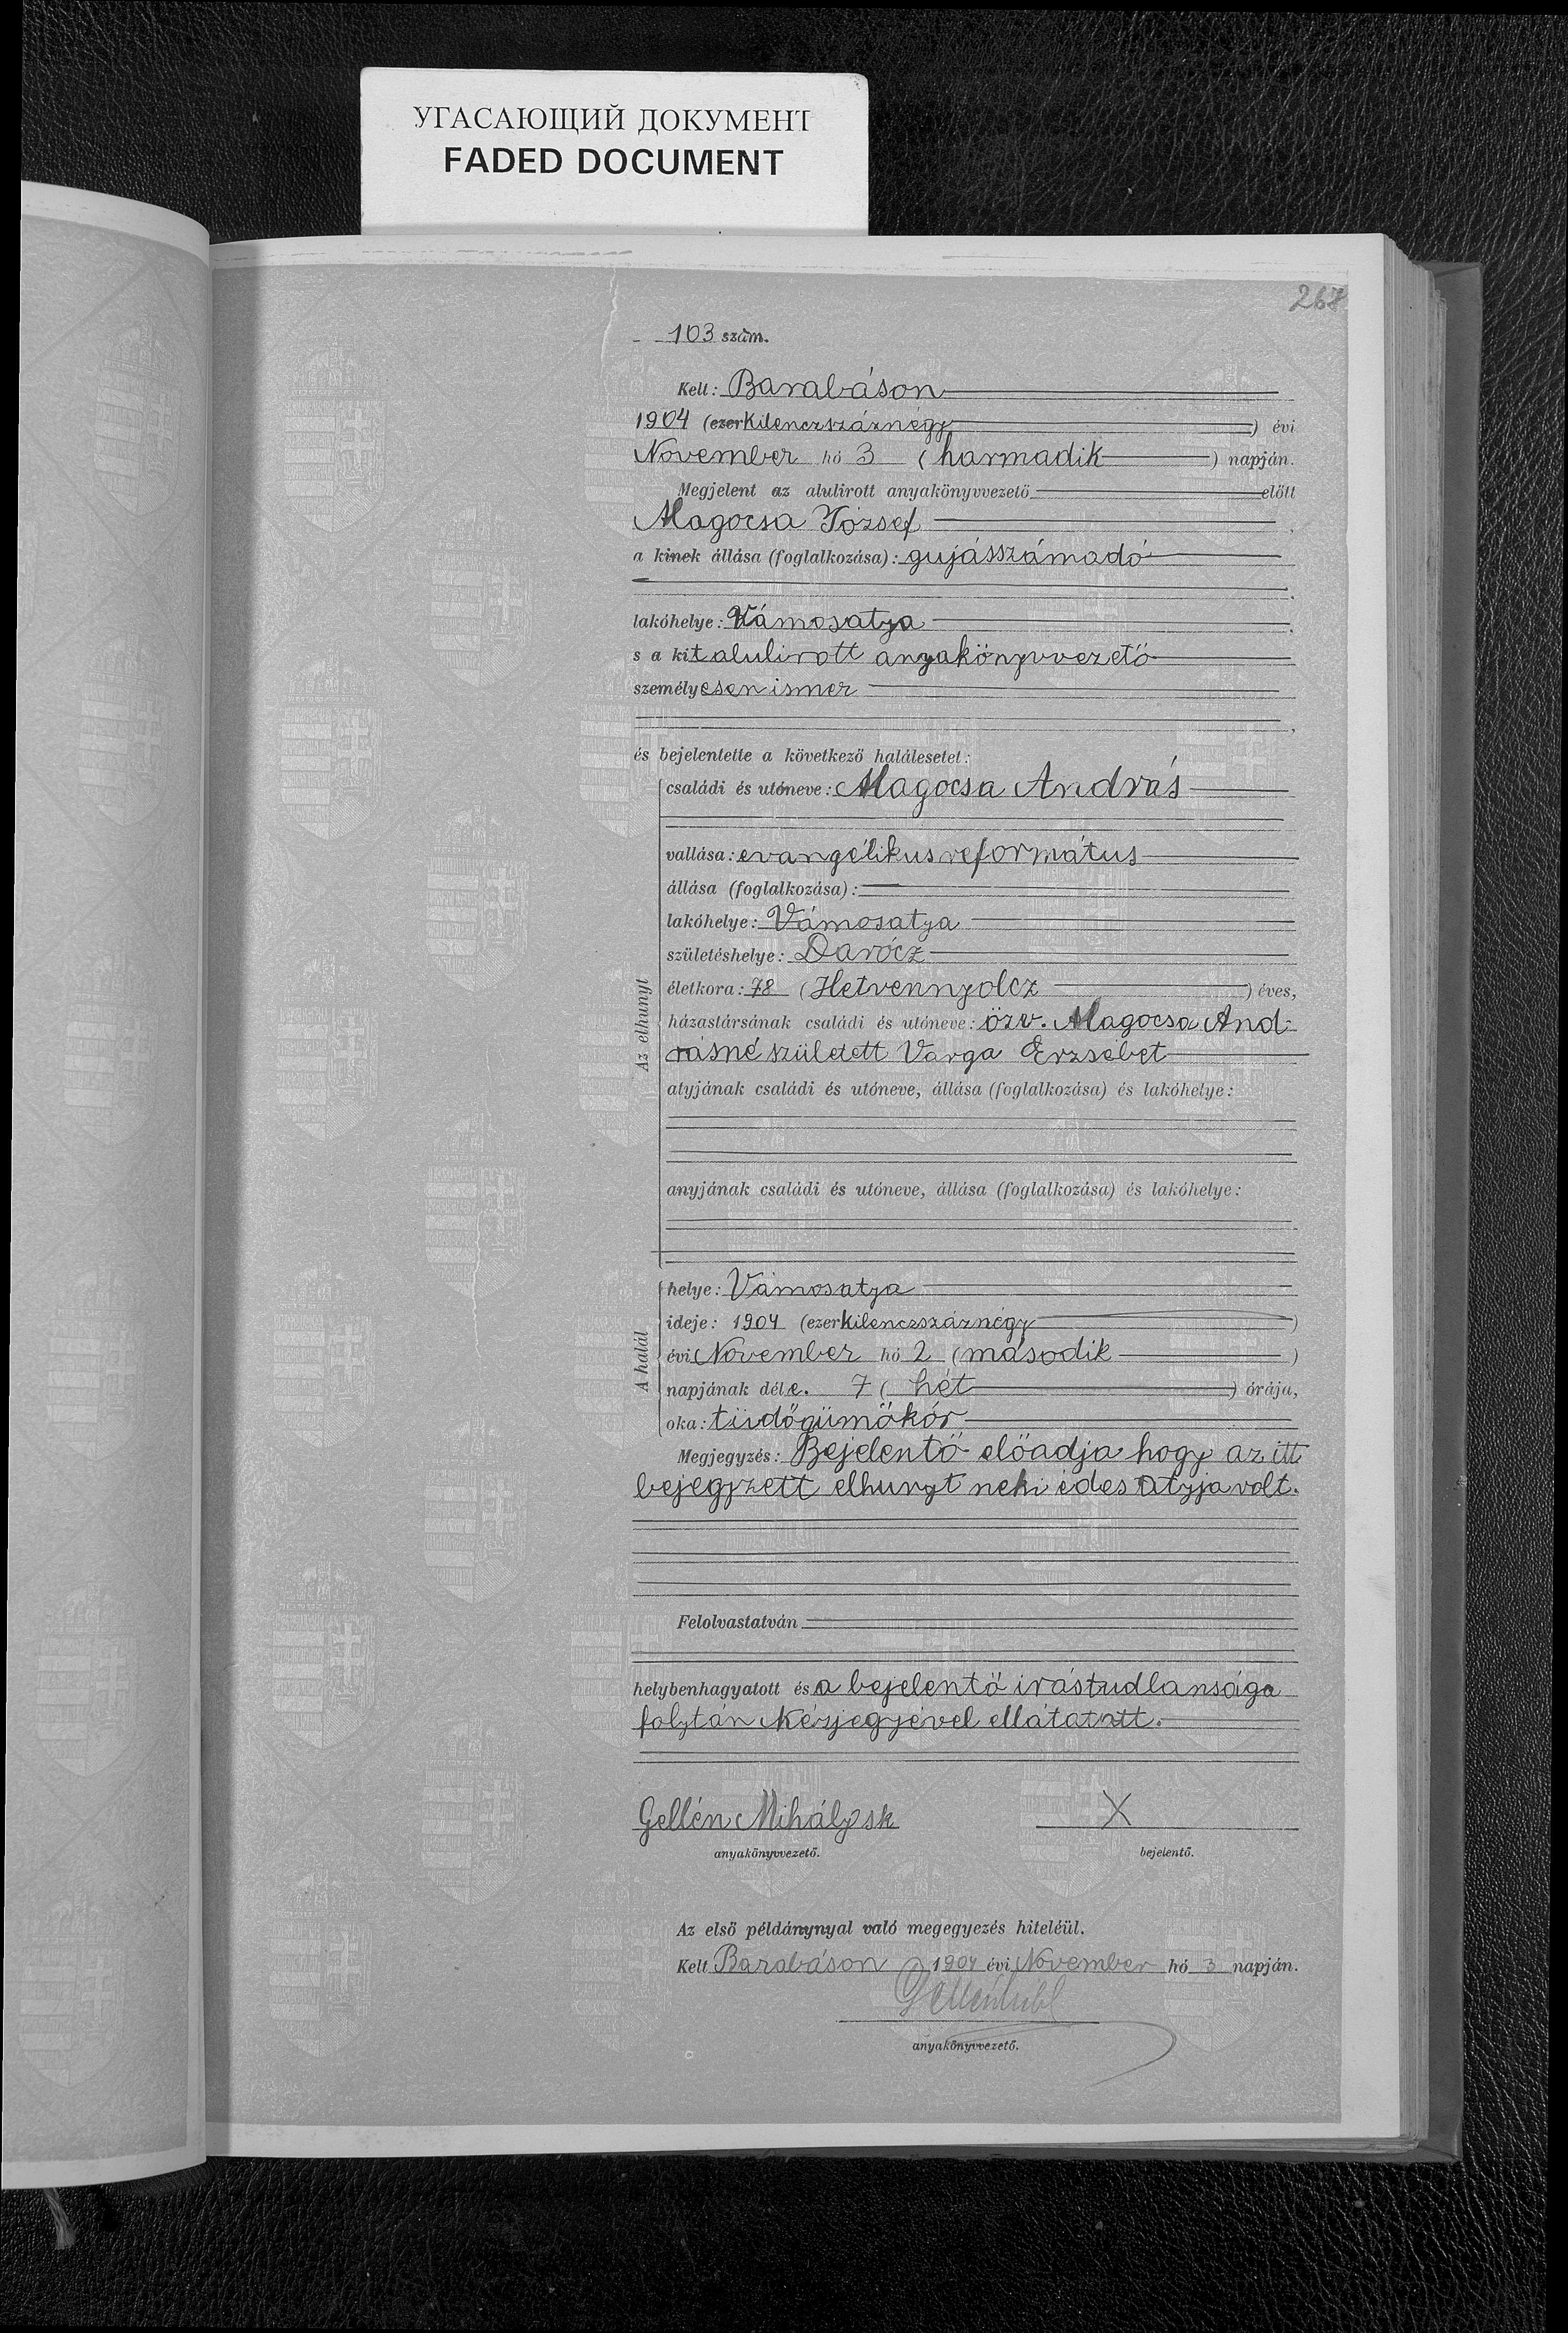 УГАСАЮЩИЙ ДОКУМЕНТ
FADED DOCUMENT
268
103 szám.
Kelt: Barabáson
1904 (ezerkilenczszáznégy) évi
November hó 3 (harmadik) napján.
Megjelent az alulirott anyakönyvvezető előtt
Magocsa József,
a kinek állása (foglalkozása): gujásszámadó
lakóhelye: Vámosatya,
s a kit alulirott anyakönyvvezető
személyesen ismer
és bejelentette a következő halálesetet:
Az elhunyt
családi és utóneve: Magocsa András
vallása: evangélikus református
állása (foglalkozása):
lakóhelye: Vámosatya
születéshelye: Darócz
életkora: 78 (Hetvennyolcz) éves,
házastársának családi és utóneve: özv. Magocsa And-
rásné született Varga Erzsébet
atyjának családi és utóneve, állása (foglalkozása) és lakóhelye:
anyjának családi és utóneve, állása (foglalkozása) és lakóhelye:
A halál
helye: Vámosatya
ideje: 1904 (ezerkilenczszáznégy)
évi November hó 2 (második)
napjának déle. 7 (hét) órája,
oka: tüdőgümőkór
Megjegyzés: Bejelentő előadja hogy az itt
bejegyzett elhunyt neki édes atyja volt.
Felolvastatván
helybenhagyatott és a bejelentő irástudlansága
folytán kézjegyével ellátatott.
Gellén Mihály sk
X
anyakönyvvezető.
bejelentő.
Az első példánynyal való megegyezés hiteléül.
Kelt Barabáson 1904 évi November hó 3 napján.
anyakönyvvezető.